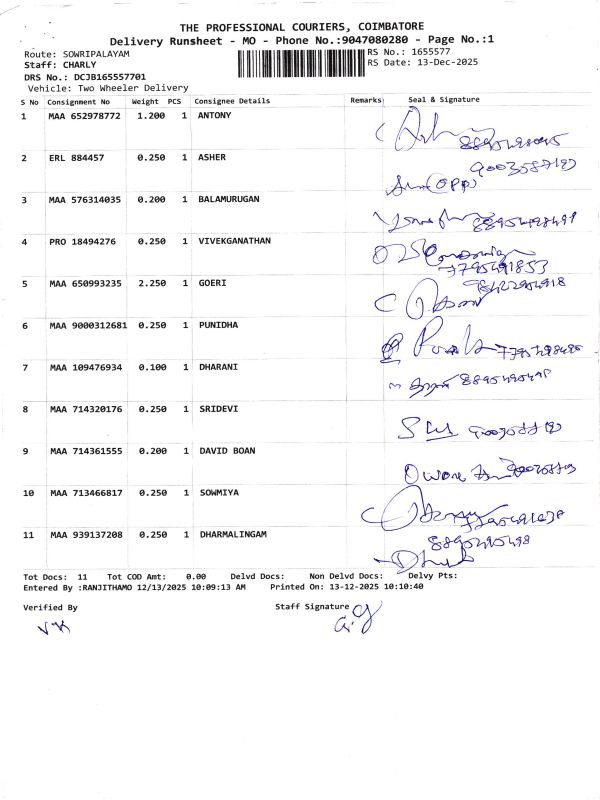 THE PROFESSIONAL COURIERS, COIMBATORE
Delivery Runsheet - MO - Phone No.:9047080280 - Page No.:1
Route: SOWRIPALAYAM RS No.: 1655577
Staff: CHARLY RS Date: 13-Dec-2025
DRS No.: DCJB165557701
Vehicle: Two Wheeler Delivery
S No Consignment No Weight PCS Consignee Details Remarks Seal & Signature
1 MAA 652978772 1.200 1 ANTONY
2 ERL 884457 0.250 1 ASHER
3 MAA 576314035 0.200 1 BALAMURUGAN
4 PRO 18494276 0.250 1 VIVEKGANATHAN
7795491853
5 MAA 650993235 2.250 1 GOERI
6 MAA 9000312681 0.250 1 PUNIDHA
7 MAA 109476934 0.100 1 DHARANI
8 MAA 714320176 0.250 1 SRIDEVI
9 MAA 714361555 0.200 1 DAVID BOAN
10 MAA 713466817 0.250 1 SOWMIYA
11 MAA 939137208 0.250 1 DHARMALINGAM
8895495498
Tot Docs: 11 Tot COD Amt: 0.00 Delvd Docs: Non Delvd Docs: Delvy Pts:
Entered By :RANJITHAMO 12/13/2025 10:09:13 AM Printed On: 13-12-2025 10:10:40
Verified By Staff Signature
VK